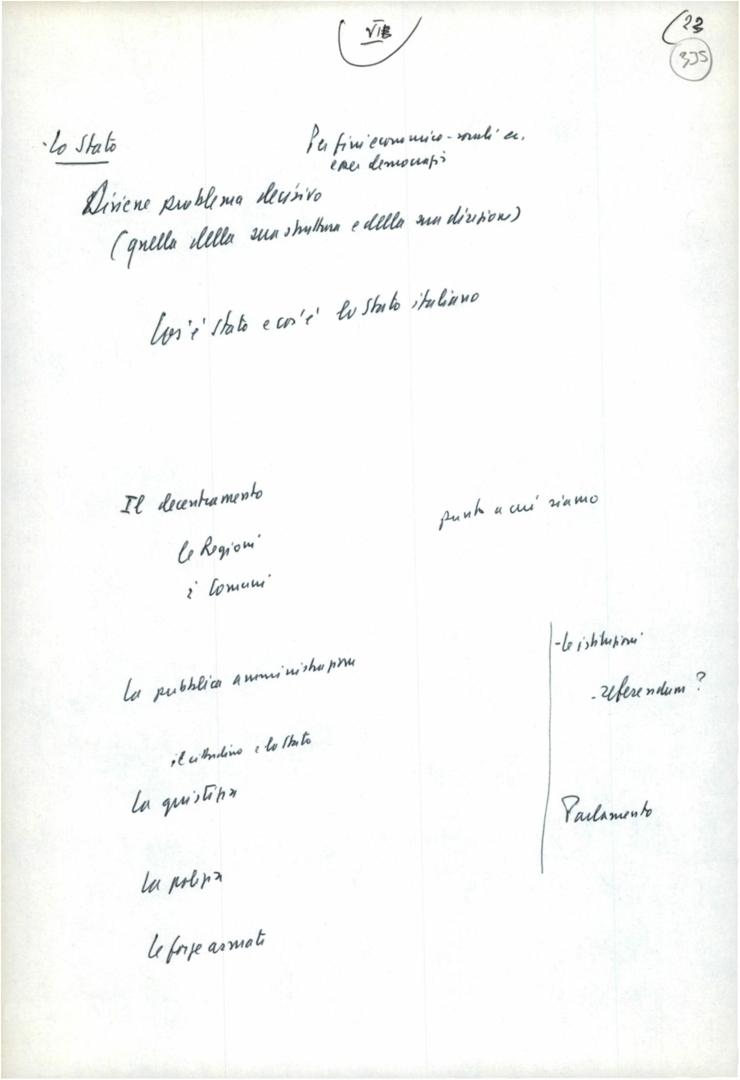 VII
23
335
Lo Stato
Per fini economico-sociali ec.
democrazia
Diviene problema decisivo
(quella della sua struttura e della sua direzione)
Cos'è stato e cos'è lo Stato italiano
Il decentramento
punto a cui siamo
le Regioni
i Comuni
- le istituzioni
La pubblica amministrazione
- referendum?
il cittadino e lo Stato
La giustizia
Parlamento
La polizia
le forze armate